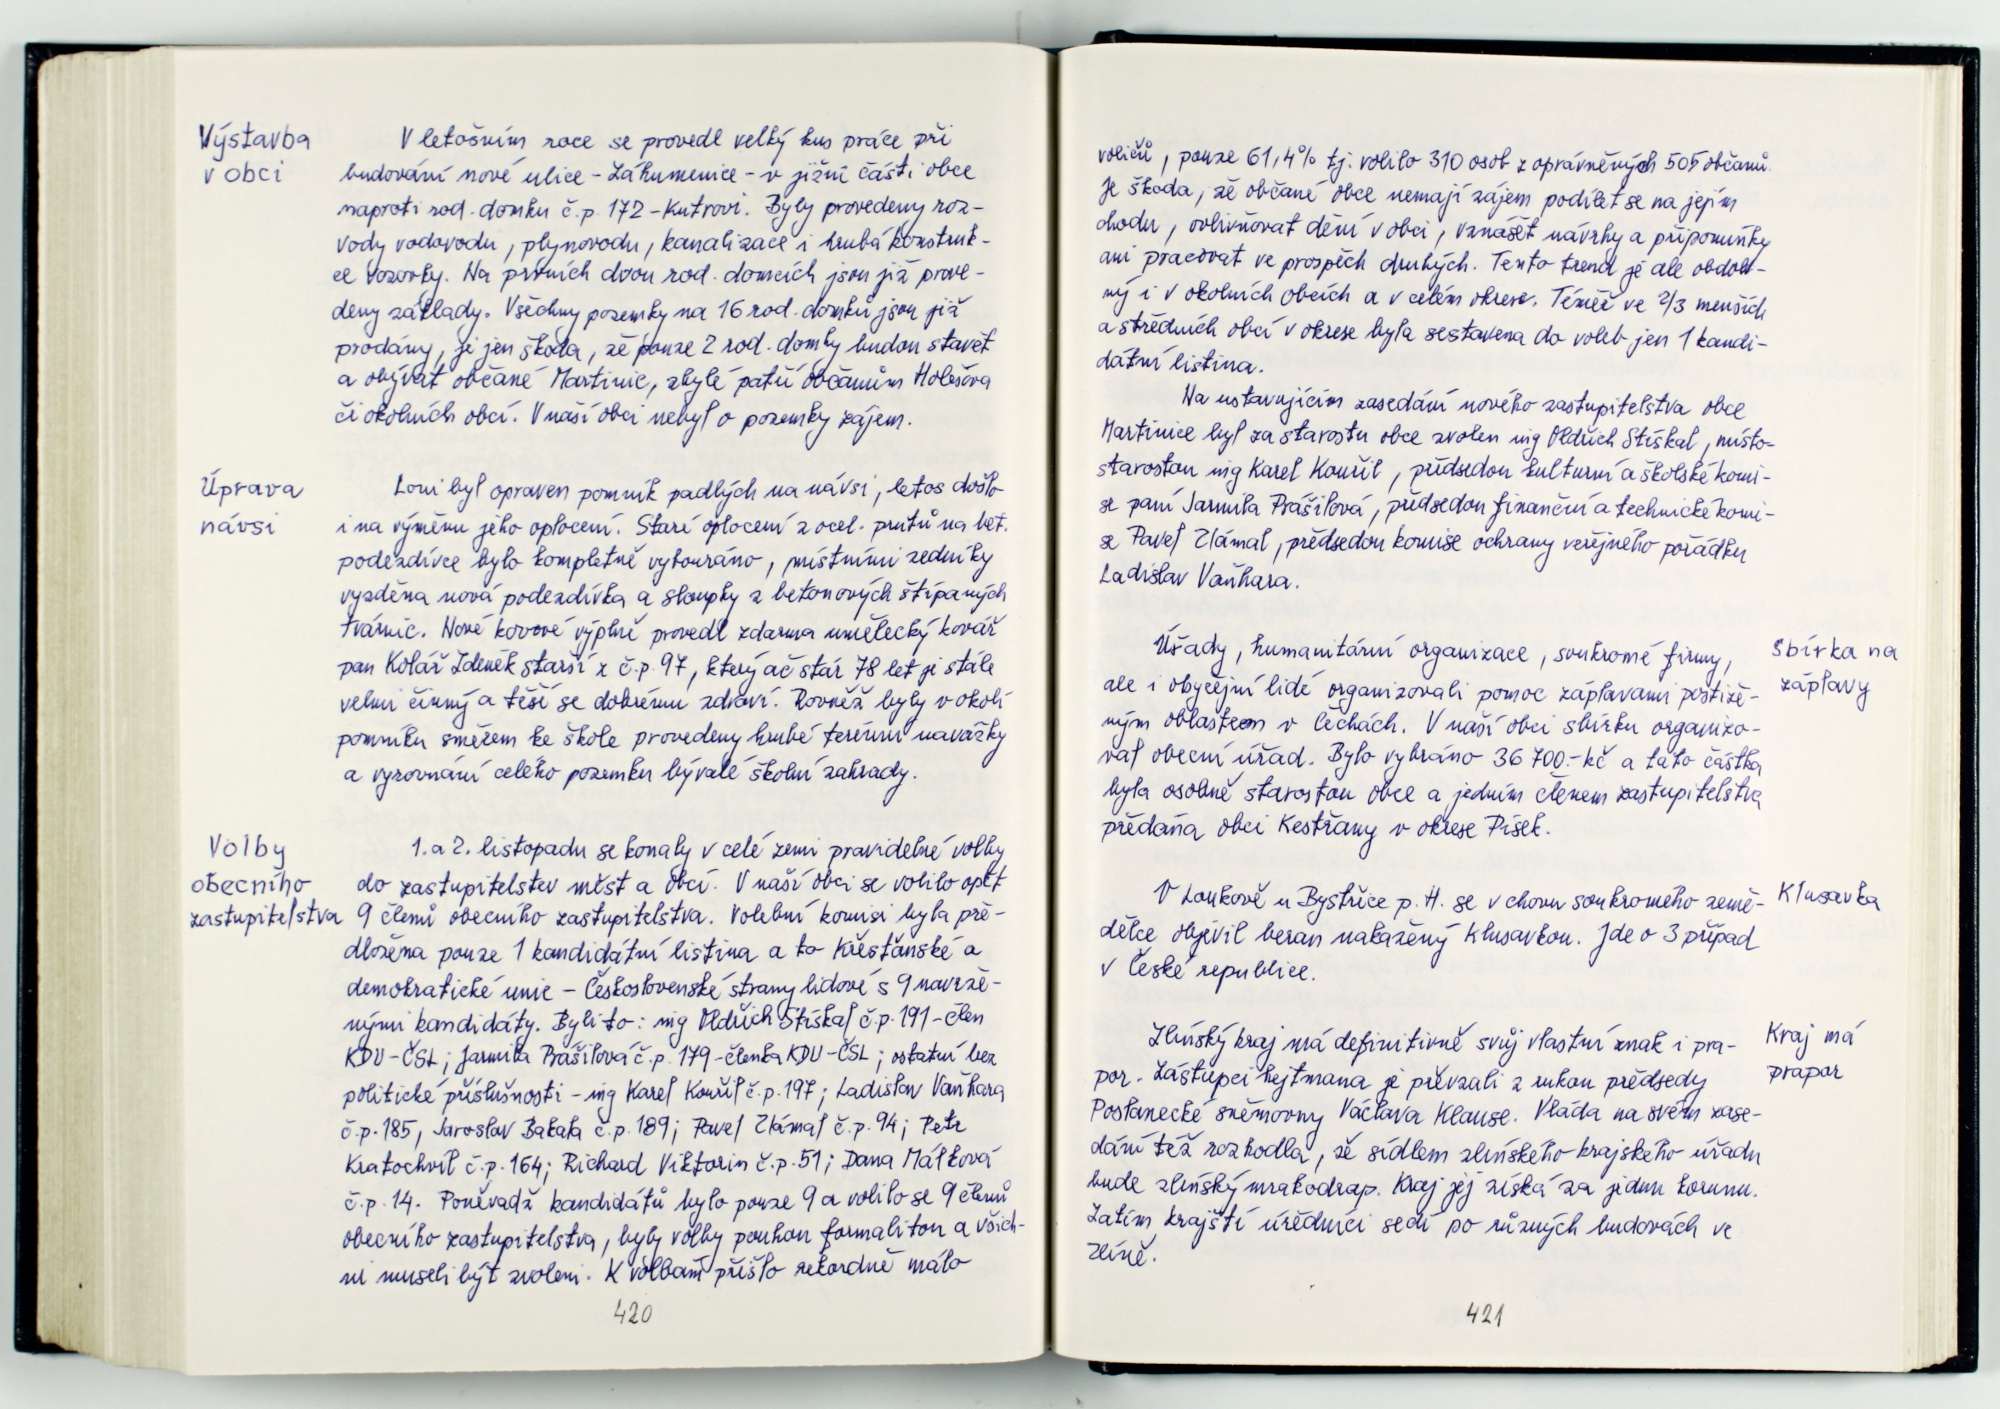 Výstavba
v obci
V letošním roce se provedl velký kus práce při
budování nové ulice - Záhumenice - v jižní části obce
naproti rod. domku č.p. 172 - Kutrovi. Byly provedeny roz-
vody vodovodu, plynovodu, kanalizace i hrubá konstruk-
ce vozovky. Na prvních dvou rod. domcích jsou již prove-
deny základy. Všechny pozemky na 16 rod. domků jsou již
prodány, je jen škoda, že pouze 2 rod. domky budou stavět
a obývat občané Martinic, zbylé patří občanům Holešova
či okolních obcí. V naší obci nebyl o pozemky zájem.
Úprava
návsi
Loni byl opraven pomník padlých na návsi, letos došlo
i na výměnu jeho oplocení. Staré oplocení z ocel. prutů na bet.
podezdívce bylo kompletně vybouráno, místními zedníky
vyzděna nová podezdívka a sloupky z betonových štípaných
tvárnic. Nové kovové výplně provedl zdarma umělecký kovář
pan Kolář Zdeněk starší z č.p. 97, který ač stár 78 let je stále
velmi činný a těší se dobrému zdraví. Rovněž byly v okolí
pomníku směrem ke škole provedeny hrubé terénní navážky
a vyrovnání celého pozemku bývalé školní zahrady.
Volby
obecního
zastupitelstva
1. a 2. listopadu se konaly v celé zemi pravidelné volby
do zastupitelstev měst a obcí. V naší obci se volilo opět
9 členů obecního zastupitelstva. Volební komisi byla pře-
dložena pouze 1 kandidátní listina a to Křesťanské a
demokratické unie - Československé strany lidové s 9 navrže-
nými kandidáty. Byli to: ing Oldřich Stískal č.p. 191 - člen
KDU-ČSL; Jarmila Prášilová č.p. 179 - členka KDU-ČSL; ostatní bez
politické příslušnosti - ing Karel Kouřil č.p. 197; Ladislav Vaňhara
č.p. 185, Jaroslav Bakala č.p. 189; Pavel Zlámal č.p. 94; Petr
Kratochvíl č.p. 164; Richard Viktorin č.p. 51; Dana Málková
č.p. 14. Poněvadž kandidátů bylo pouze 9 a volilo se 9 členů
obecního zastupitelstva, byly volby pouhou formalitou a všich-
ni museli být zvoleni. K volbám přišlo rekordně málo
420
voličů, pouze 61,4% tj. volilo 310 osob z oprávněných 505 občanů.
Je škoda, že občané obce nemají zájem podílet se na jejím
chodu, ovlivňovat dění v obci, vznášet návrhy a připomínky
ani pracovat ve prospěch druhých. Tento trend je ale obdob-
ný i v okolních obcích a v celém okrese. Téměř ve 2/3 menších
a středních obcí v okrese byla sestavena do voleb jen 1 kandi-
dátní listina.
Na ustavujícím zasedání nového zastupitelstva obce
Martinice byl za starostu obce zvolen ing Oldřich Stískal, místo-
starostou ing Karel Kouřil, předsedou kulturní a školské komi-
se paní Jarmila Prášilová, předsedou finanční a technické komi-
se Pavel Zlámal, předsedou komise ochrany veřejného pořádku
Ladislav Vaňhara.
Sbírka na
záplavy
Úřady, humanitární organizace, soukromé firmy,
ale i obyčejní lidé organizovali pomoc záplavami postiže-
ným oblastem v Čechách. V naší obci sbírku organizo-
val obecní úřad. Bylo vybráno 36 700.- kč a tato částka
byla osobně starostou obce a jedním členem zastupitelstva
předána obci Kestřany v okrese Písek.
Klusavka
V Loukově u Bystřice p. H. se v chovu soukromého země-
dělce objevil beran nakažený klusavkou. Jde o 3 případ
v České republice.
Kraj má
prapor
Zlínský kraj má definitivně svůj vlastní znak i pra-
por. Zástupci hejtmana je převzali z rukou předsedy
Poslanecké sněmovny Václava Klause. Vláda na svém zase-
dání též rozhodla, že sídlem zlínského krajského úřadu
bude zlínský mrakodrap. Kraj jej získá za jednu korunu.
Zatím krajští úředníci sedí po různých budovách ve
Zlíně.
421